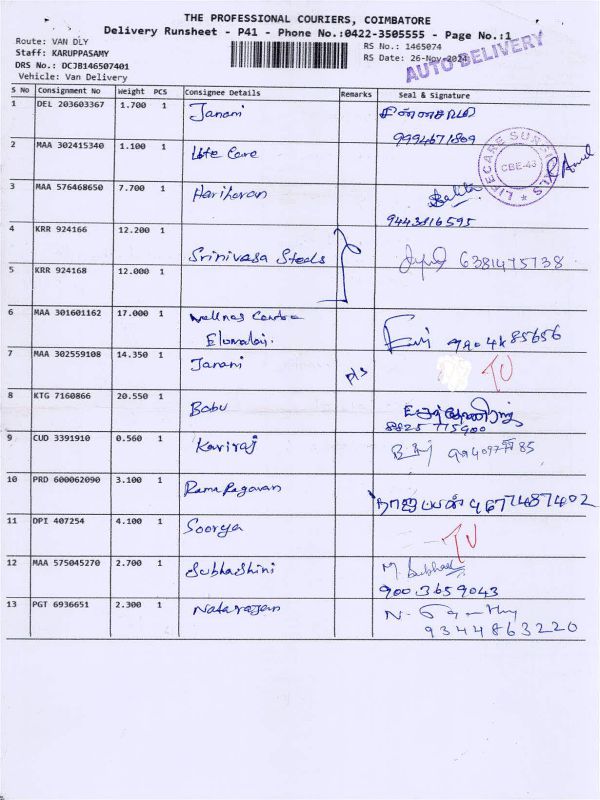 THE PROFESSIONAL COURIERS, COIMBATORE
Delivery Runsheet - P41 - Phone No.:0422-3505555 - Page No.:1
Route: VAN DLY
RS No.: 1465074
Staff: KARUPPASAMY
RS Date: 26-Nov-2024
DRS No.: DCJB146507401
AUTO DELIVERY
Vehicle: Van Delivery
S No Consignment No Weight PCS Consignee Details Remarks Seal & Signature
1 DEL 203603367 1.700 1 Janani
9994671809
2 MAA 302415340 1.100 1 Life Care
LIFECARE CBE-43
3 MAA 576468650 7.700 1 Hariharan
9443816595
4 KRR 924166 12.200 1
Srinivasa Steels 6381475738
5 KRR 924168 12.000 1
6 MAA 301601162 17.000 1 Wellnas Centre
Elumalai.
7 MAA 302559108 14.350 1 Janani
8 KTG 7160866 20.550 1 Babu
8825 715900
9 CUD 3391910 0.560 1 Kaviraj
10 PRD 600062090 3.100 1 Rama Ragavan
11 DPI 407254 4.100 1 Soorya
12 MAA 575045270 2.700 1 Subhashini
9003659043
13 PGT 6936651 2.300 1 Natarajan
9344863220